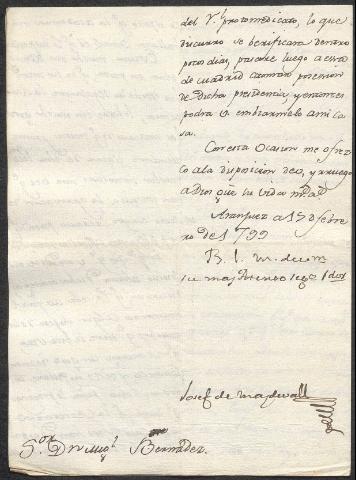 del Rl protomedicato, lo que
discurro se berificara dentro
pocos dias, pasare luego a essa
de Madrid a tomar posesion
de dicha presidencia, y entonces
podra V embiarmelo a mi ca
sa.
Con esta ocasion me ofrez
co a la disposicion de V, y ruego
a Dios gue su vida ms as
Aranjuez a 15 de febre
ro de 1799
B. l. m. de vm
su mas Atento segro Sdor
Josef de
Sor Dn Migl Bernadez.